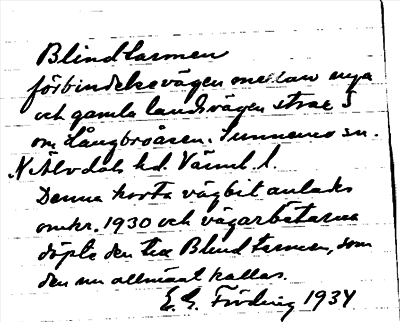 Blindtarmen
förbindelsevägen mellan nya
och gamla landsvägen strax S
om Långbroåsen. Sunnemo sn.
N Älvdals hd. Värml. l.
Denna korta vägbit anlades
omkr. 1930 och vägarbetarna
döpte den till Blindtarmen, som
den nu allmänt kallas.
E. G. 1934